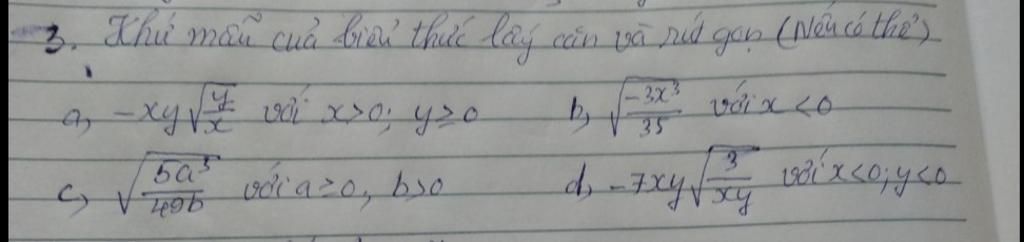 3. Khử mẫu của biểu thức lấy căn và rút gọn (Nếu có thể)
a, -xy√(y/x) với x>0; y≥0 b, √(-3x³/35) với x<0
c, √(5a³/49b) với a≥0, b>0 d, -7xy√(3/xy) với x<0; y<0